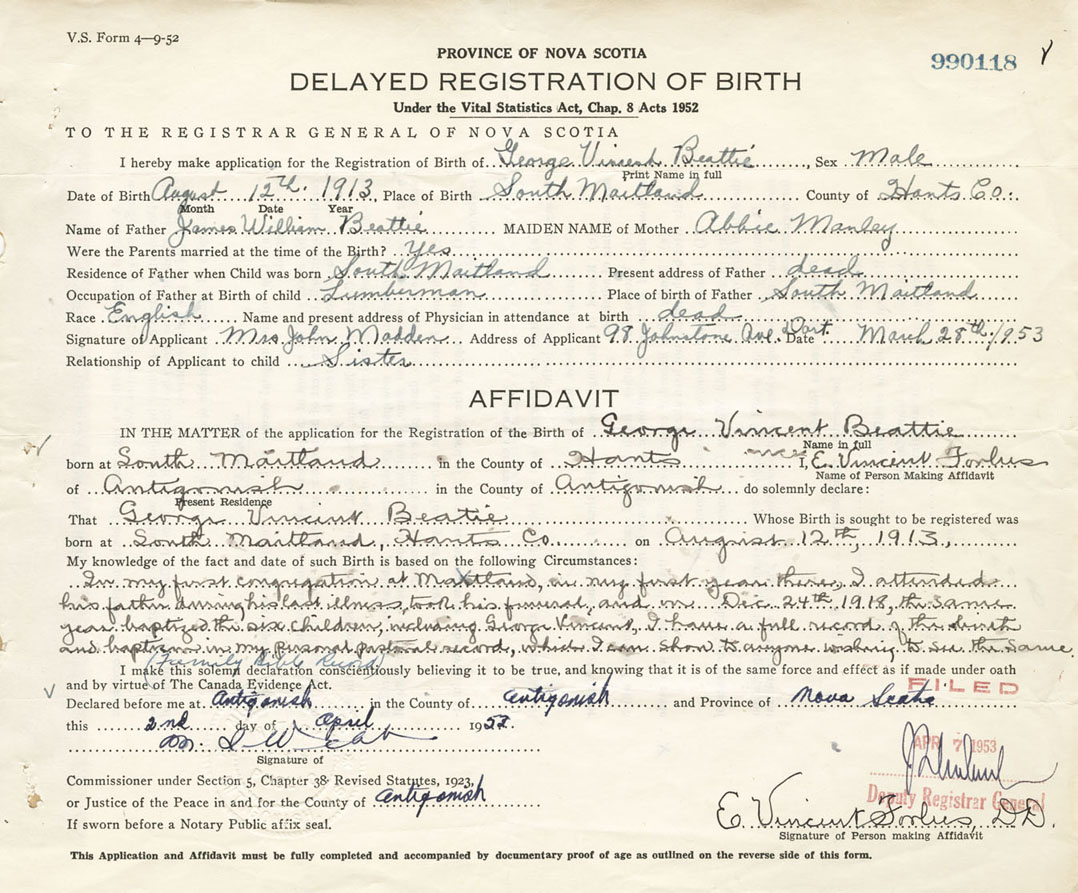 V.S. Form 4—9-52
PROVINCE OF NOVA SCOTIA
990118
DELAYED REGISTRATION OF BIRTH
Under the Vital Statistics Act, Chap. 8 Acts 1952
TO THE REGISTRAR GENERAL OF NOVA SCOTIA
I hereby make application for the Registration of Birth of George Vincent Beattie, Sex Male
Print Name in full
Date of Birth August 12th. 1913, Place of Birth South Maitland County of Hants Co.
Month Date Year
Name of Father James William Beattie MAIDEN NAME of Mother Abbie Manley
Were the Parents married at the time of the Birth? Yes
Residence of Father when Child was born South Maitland Present address of Father dead
Occupation of Father at Birth of child Lumberman Place of birth of Father South Maitland
Race English Name and present address of Physician in attendance at birth dead
Signature of Applicant Mrs John Madden Address of Applicant 98 Johnstone Ave. Dart. Date March 28th/1953
Relationship of Applicant to child Sister
AFFIDAVIT
IN THE MATTER of the application for the Registration of the Birth of George Vincent Beattie
Name in full
born at South Maitland in the County of Hants I, E. Vincent Forbes
Name of Person Making Affidavit
of Antigonish in the County of Antigonish do solemnly declare:
Present Residence
That George Vincent Beatie Whose Birth is sought to be registered was
born at South Maitland, Hants Co. on August 12th, 1913,
My knowledge of the fact and date of such Birth is based on the following Circumstances:
In my first congregation at Maitland, in my first year there, I attended
his father during his last illness, took his funeral, and on Dec. 24th 1918, the same
year baptized the six children, including George Vincent. I have a full record of the birth
and baptism in my personal pastoral record, which I can show to anyone wishing to see the same.
(Family Bible Record)
I make this solemn declaration conscientiously believing it to be true, and knowing that it is of the same force and effect as if made under oath
and by virtue of The Canada Evidence Act.
FILED
Declared before me at Antigonish in the County of Antigonish and Province of Nova Scotia
this 2nd day of April 1953
APR 7 1953
Signature of
Deputy Registrar General
Commissioner under Section 5, Chapter 38 Revised Statutes, 1923,
or Justice of the Peace in and for the County of Antigonish
E. Vincent Forbes, D.D.
If sworn before a Notary Public affix seal.
Signature of Person making Affidavit
This Application and Affidavit must be fully completed and accompanied by documentary proof of age as outlined on the reverse side of this form.